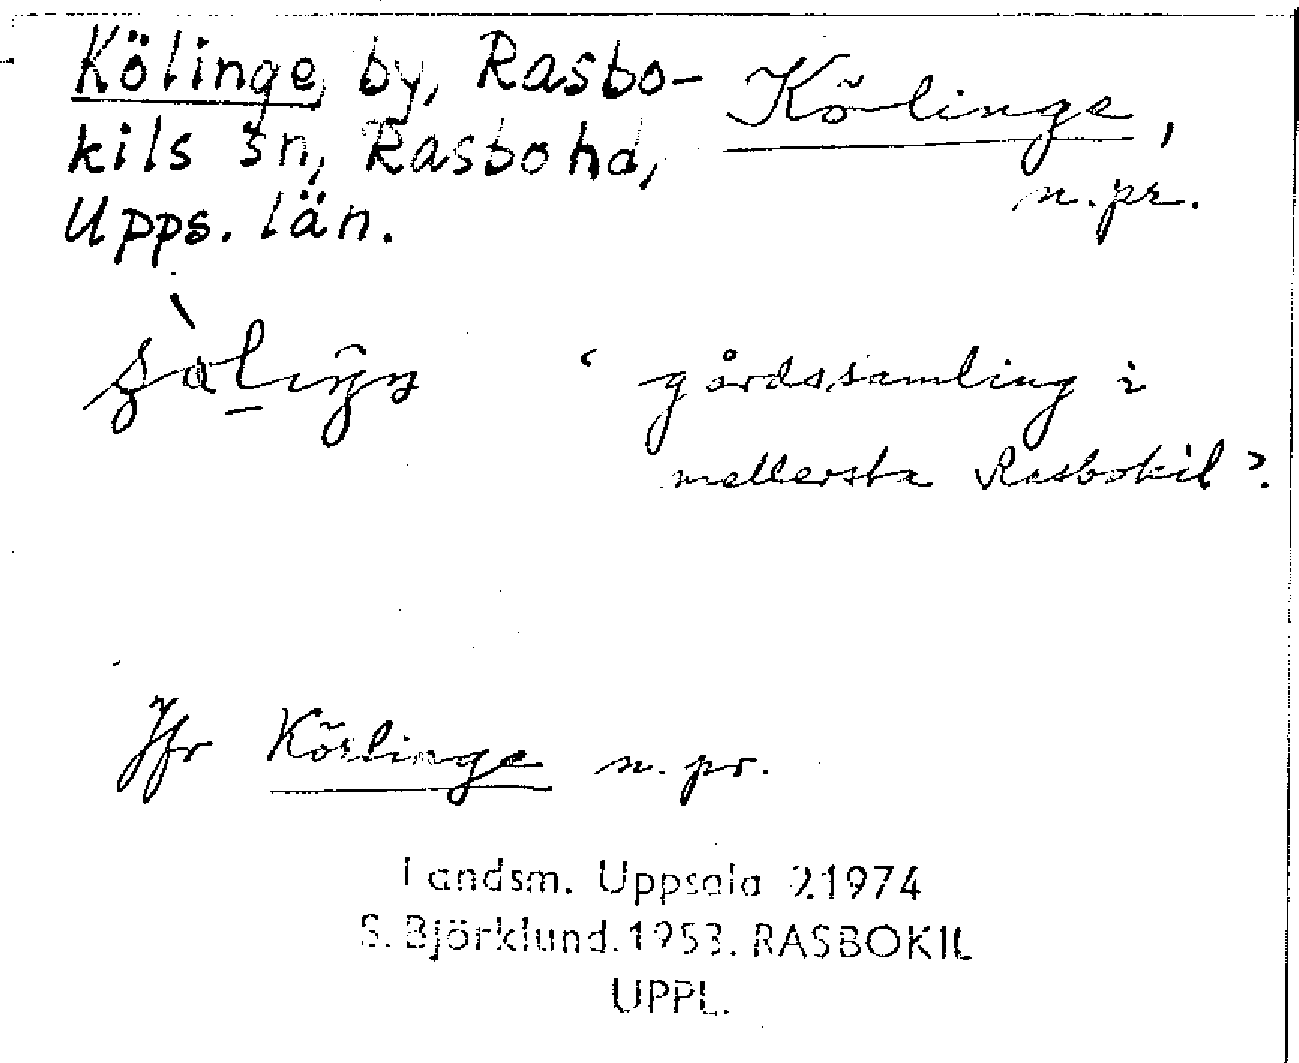 Kölinge by, Rasbo-
kils sn, Rasbo hd,
Upps. län.
Kölinge,
n. pr.
‘gårdssamling i
mellersta Rasbokil’.
Jfr Körlinge n. pr.
Landsm. Uppsala 21974
S. Björklund. 1953. RASBOKIL
UPPL.